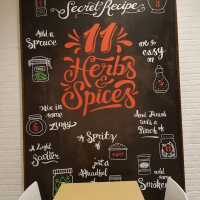 Secret Recipe
Add a
Spruce
11
Herbs
&
Spices
easy
on
Mix in
some
Zingy
A Light
Scatter
A
Spritz
of
just a
Handful
And Finish
with a
Pinch of
add some
Smokey